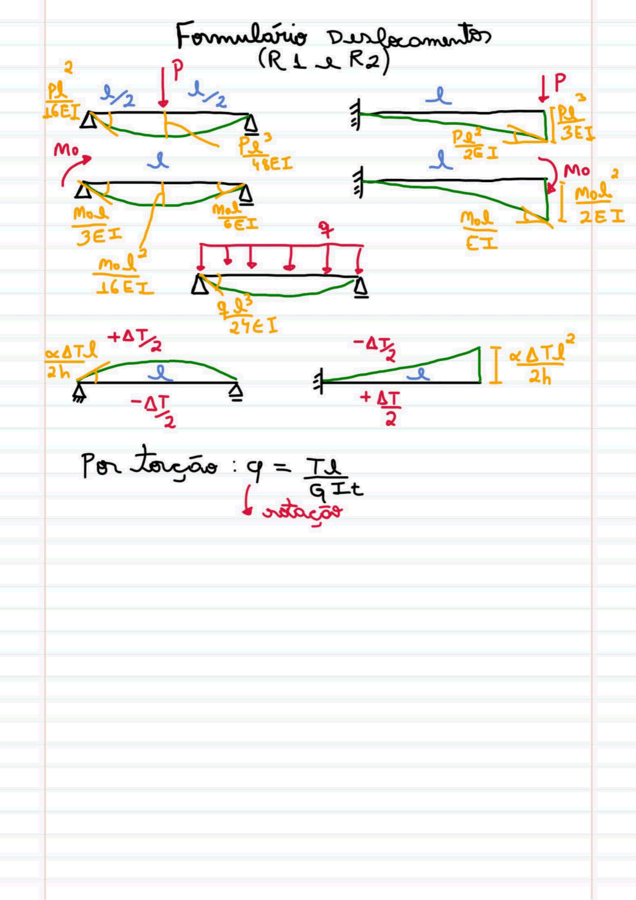 Formulário Deslocamentos
(R1 e R2)
Pl²/16EI l/2 P l/2 Pl³/48EI
l P Pl²/2EI Pl³/3EI
Mo l Mol/3EI Mol²/16EI Mol/6EI
l Mo Mol/EI Mol²/2EI
q ql³/24EI
αΔTl/2h +ΔT/2 l -ΔT/2
-ΔT/2 l +ΔT/2 αΔTl²/2h
Por torção : φ = Tl/GIt
rotação